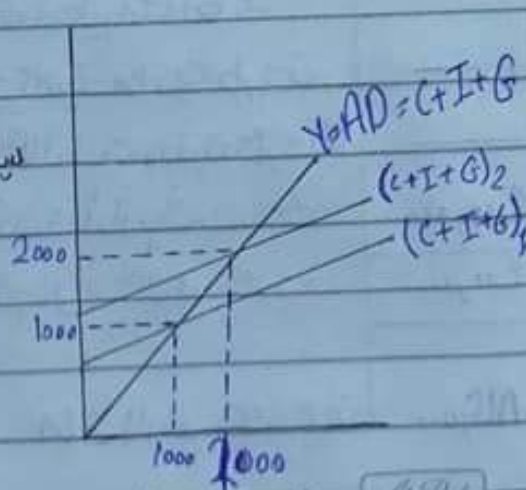 Y=AD=C+I+G
(C+I+G)2
(C+I+G)
2000
1000
1000 2000